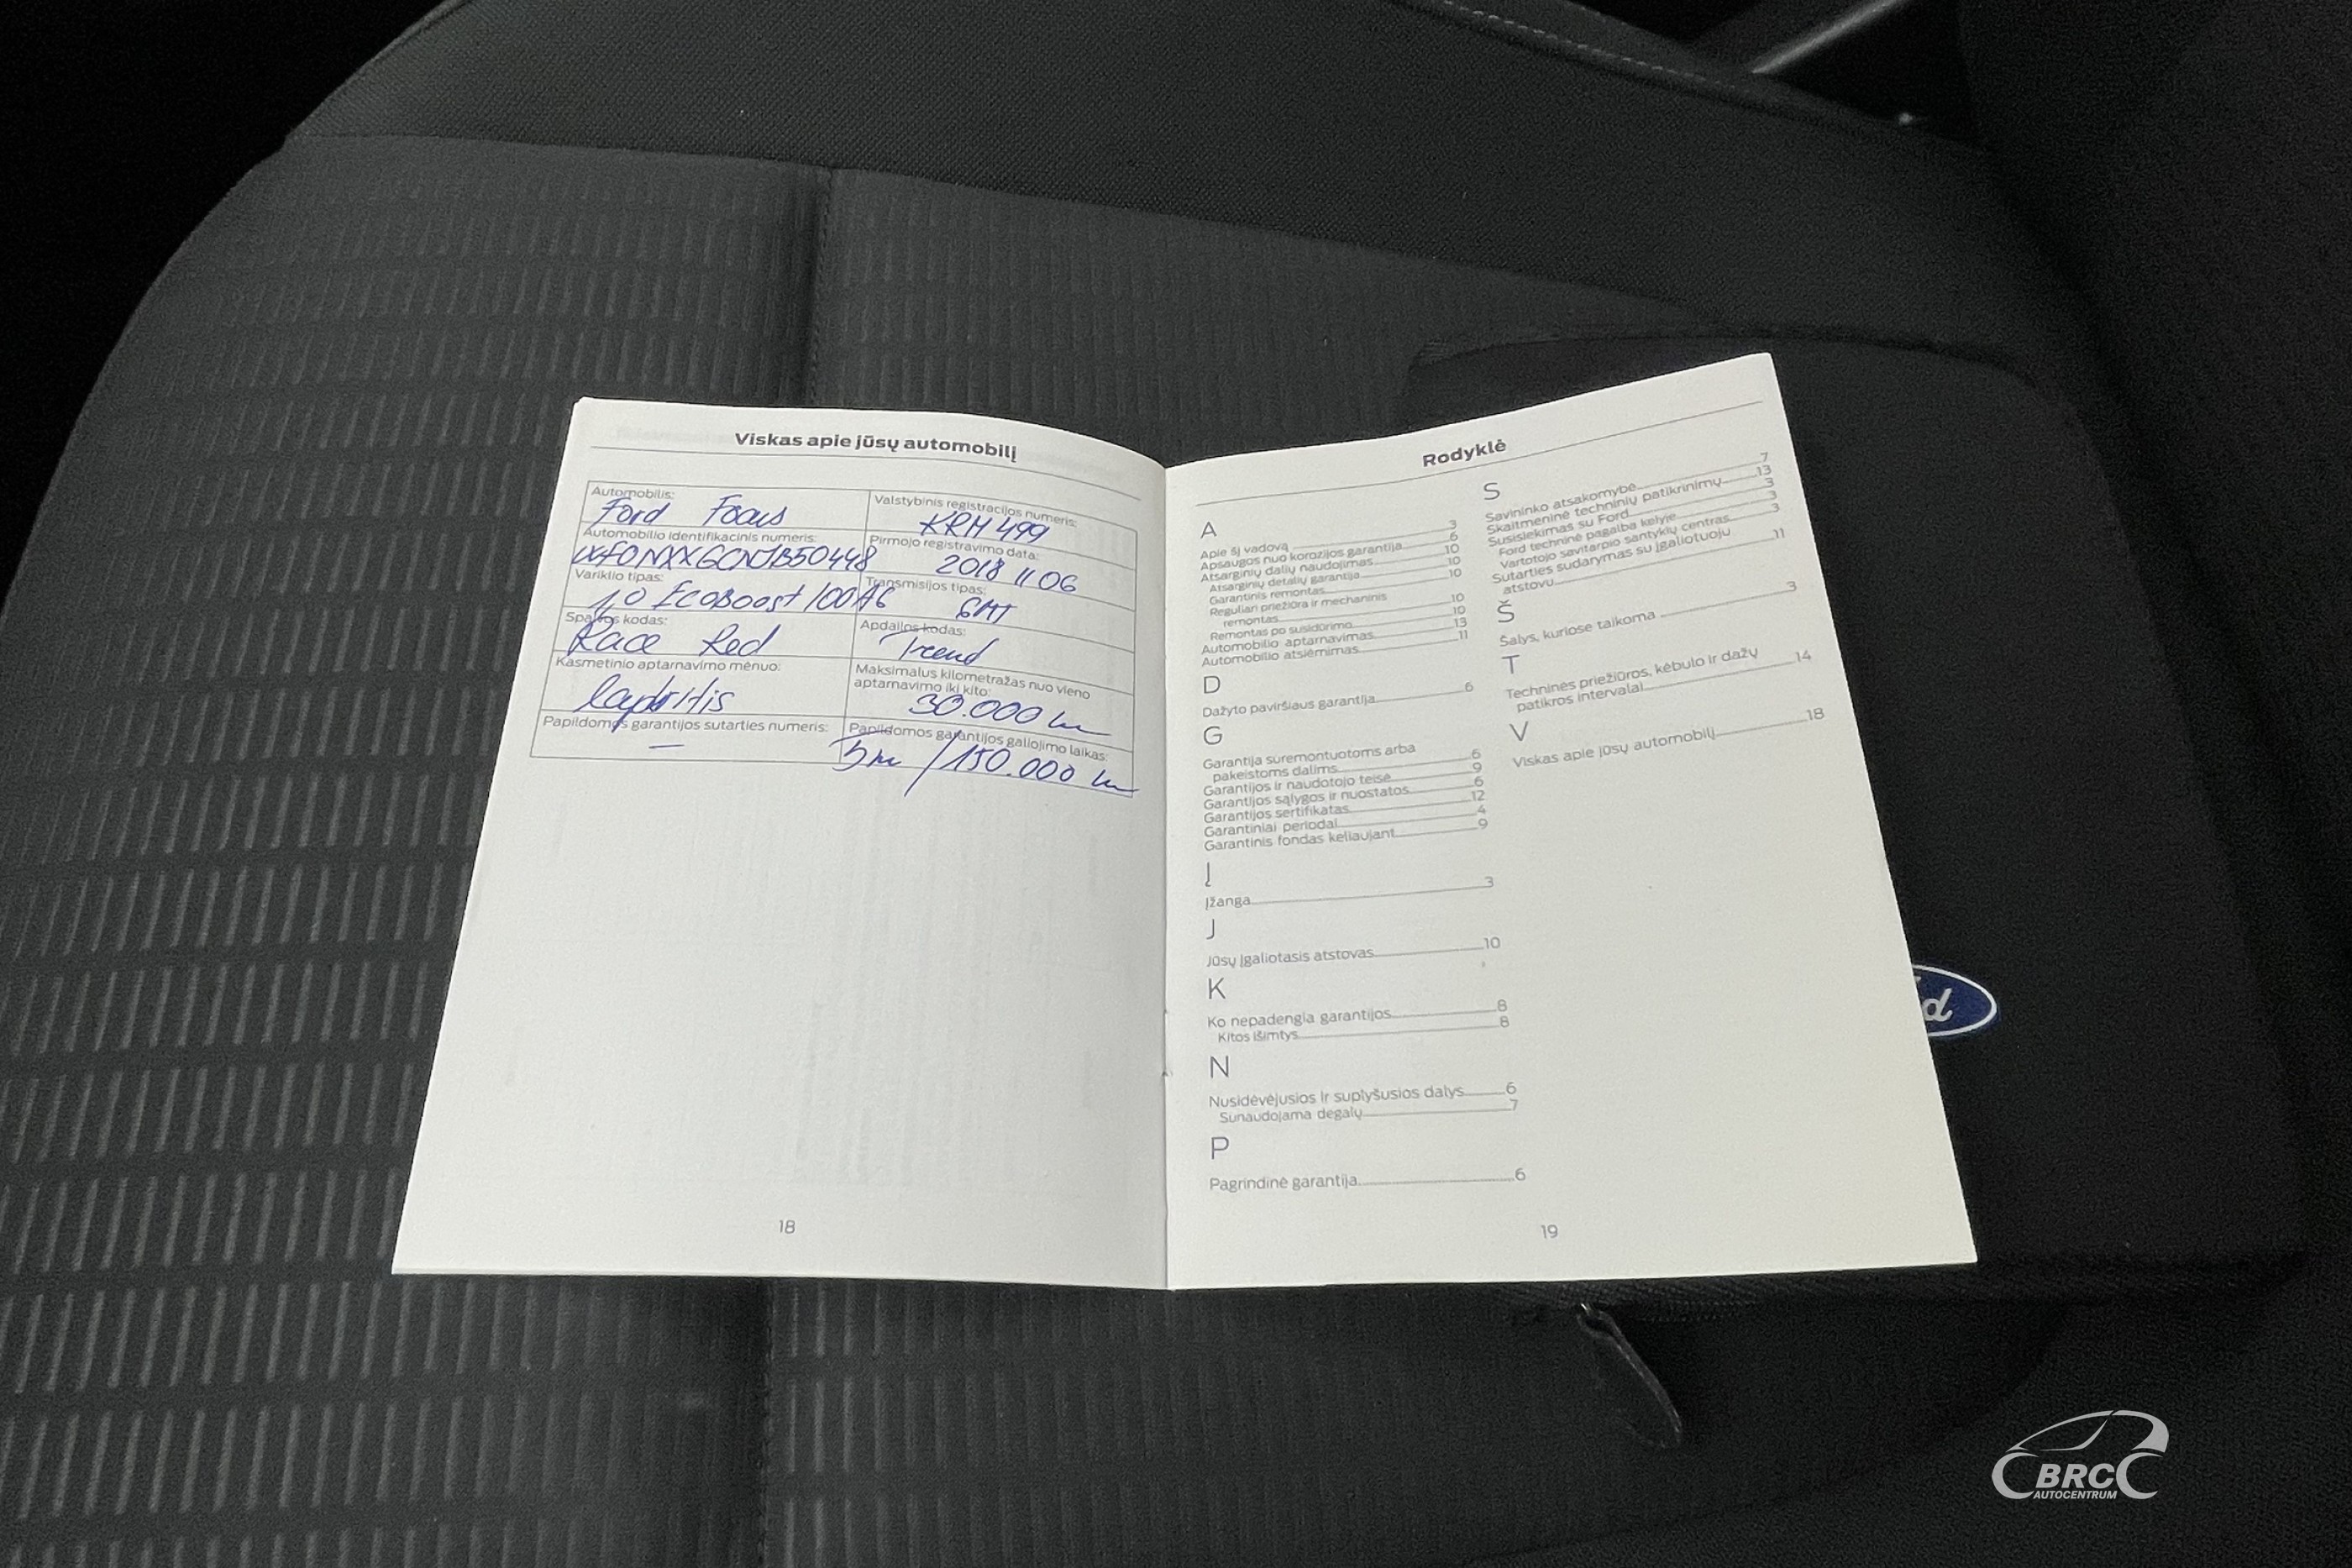 Viskas apie jūsų automobilį
Automobilis:
Ford Focus
Valstybinis registracijos numeris:
KRM 499
Automobilio identifikacinis numeris:
WF0NXXGCNJB50448
Pirmojo registravimo data:
2018 11 06
Variklio tipas:
1,0 EcoBoost 100AG
Transmisijos tipas:
6MT
Spalvos kodas:
Race Red
Apdailos kodas:
Trend
Kasmetinio aptarnavimo mėnuo:
lapkritis
Maksimalus kilometražas nuo vieno
aptarnavimo iki kito:
30.000 km
Papildomos garantijos sutarties numeris:
—
Papildomos garantijos galiojimo laikas:
5m / 150.000 km
18
Rodyklė
A
Apie šį vadovą 3
Apsaugos nuo korozijos garantija 6
Atsarginių dalių naudojimas 10
Atsarginių detalių garantija 10
Garantinis remontas 10
Reguliari priežiūra ir mechaninis
remontas 10
Remontas po susidūrimo 10
Automobilio aptarnavimas 13
Automobilio atsiėmimas 11
D
Dažyto paviršiaus garantija 6
G
Garantija suremontuotoms arba
pakeistoms dalims 6
Garantijos ir naudotojo teisė 9
Garantijos sąlygos ir nuostatos 6
Garantijos sertifikatas 12
Garantiniai periodai 4
Garantinis fondas keliaujant 9
Į
Įžanga 3
J
Jūsų įgaliotasis atstovas 10
K
Ko nepadengia garantijos 8
Kitos išimtys 8
N
Nusidėvėjusios ir suplyšusios dalys 6
Sunaudojama degalų 7
P
Pagrindinė garantija 6
S
Savininko atsakomybė 7
Skaitmeninė techninių patikrinimų 13
Susisiekimas su Ford 3
Ford techninė pagalba kelyje 3
Vartotojo savitarpio santykių centras 3
Sutarties sudarymas su įgaliotuoju
atstovu 11
Š
Šalys, kuriose taikoma 3
T
Techninės priežiūros, kėbulo ir dažų
patikros intervalai 14
V
Viskas apie jūsų automobilį 18
19
BRC
AUTOCENTRUM